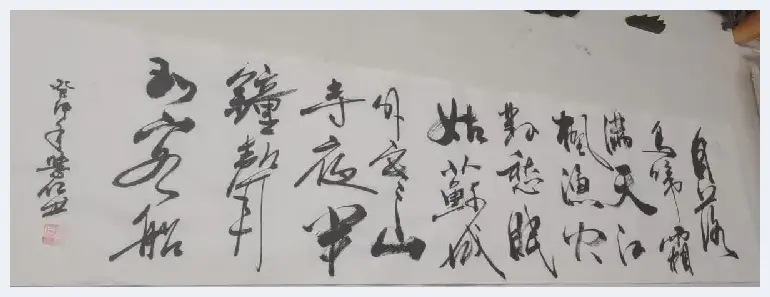 月落
烏啼霜
滿天江
楓漁火
對愁眠
姑蘇城
外寒山
寺夜半
鐘聲
到客船
癸卯年